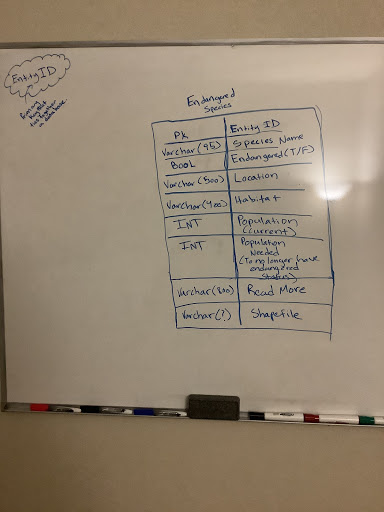 Entity ID
Endangered
Species
PK Entity ID
Varchar(95) Species Name
BOOL Endangered(T/F)
Varchar(500) Location
Varchar(400) Habitat
INT Population
(current)
INT Population
Needed
(To no longer have
endangered
status)
Varchar(800) Read More
Varchar(?) Shapefile